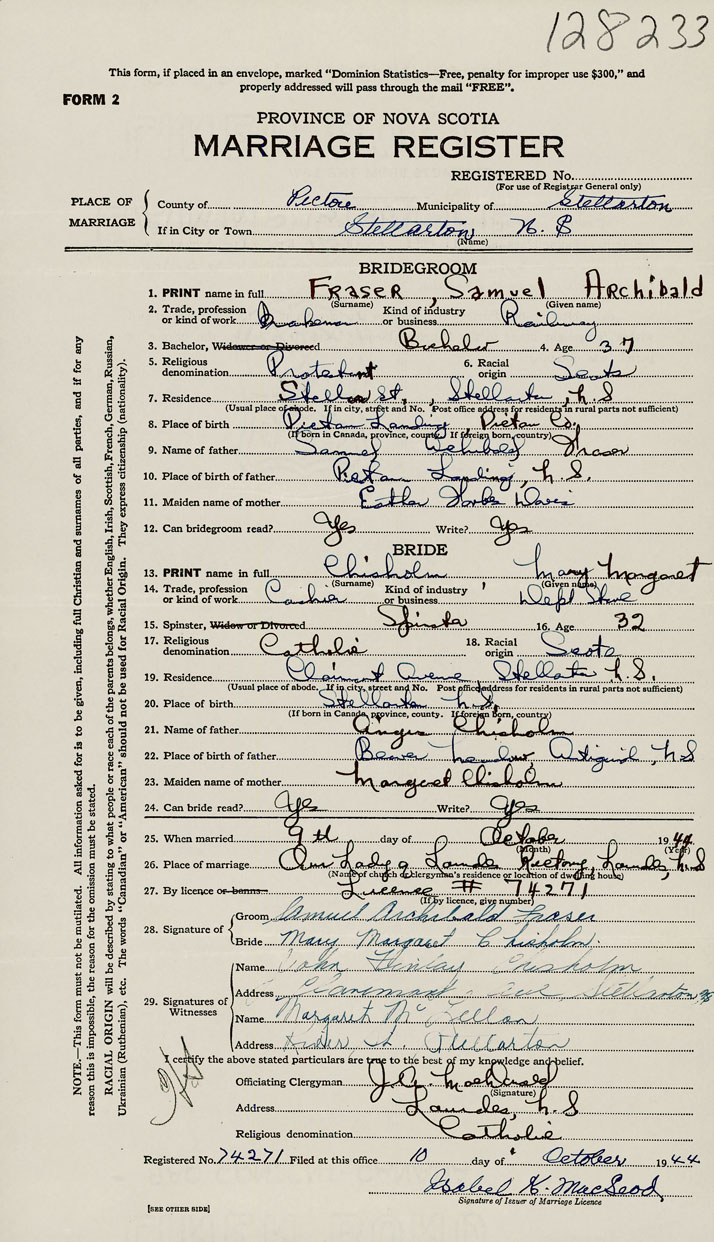 128233
This form, if placed in an envelope, marked "Dominion Statistics—Free, penalty for improper use $300," and
properly addressed will pass through the mail "FREE".
FORM 2
PROVINCE OF NOVA SCOTIA
MARRIAGE REGISTER
REGISTERED No.
(For use of Registrar General only)
PLACE OF MARRIAGE
County of Pictou Municipality of Stellarton
If in City or Town Stellarton N. S
(Name)
BRIDEGROOM
1. PRINT name in full Fraser, Samuel Archibald
(Surname) (Given name)
2. Trade, profession or kind of work Brakeman Kind of industry or business Railway
3. Bachelor, Widower or Divorced Bachelor 4. Age 37
5. Religious denomination Protestant 6. Racial origin Scots
7. Residence Stellar St., Stellarton, N.S
(Usual place of abode. If in city, street and No. Post office address for residents in rural parts not sufficient)
8. Place of birth Pictou Landing, Pictou Co.
(If born in Canada, province, county. If foreign born, country)
9. Name of father Samuel Archibald Fraser
10. Place of birth of father Pictou Landing, N.S.
11. Maiden name of mother Esther Davis
12. Can bridegroom read? Yes Write? Yes
BRIDE
13. PRINT name in full Chisholm Mary Margaret
(Surname) (Given name)
14. Trade, profession or kind of work Cashier Kind of industry or business Dept Store
15. Spinster, Widow or Divorced Spinster 16. Age 32
17. Religious denomination Catholic 18. Racial origin Scots
19. Residence Avenue Stellarton N.S.
(Usual place of abode. If in city, street and No. Post office address for residents in rural parts not sufficient)
20. Place of birth Stellarton N.S.
(If born in Canada, province, county. If foreign born, country)
21. Name of father Angus Chisholm
22. Place of birth of father Beaver Meadow, Antigonish, N.S
23. Maiden name of mother Margaret Chisholm
24. Can bride read? Yes Write? Yes
25. When married 9th day of October 1944
(Month) (Year)
26. Place of marriage Our Lady of Lourdes Rectory, Lourdes, N.S
(Name of church or clergyman's residence or location of dwelling house)
27. By licence or banns License # 74271
(If by licence, give number)
28. Signature of
Groom Samuel Archibald Fraser
Bride Mary Margaret Chisholm.
29. Signatures of Witnesses
Name John Finlay Chisholm
Address Claremont Ave Stellarton NS
Name Margaret McLellan
Address Stellarton
I certify the above stated particulars are true to the best of my knowledge and belief.
Officiating Clergyman J.A. MacDonald
(Signature)
Address Lourdes, N.S
Religious denomination Catholic
Registered No. 74271 Filed at this office 10 day of October 1944
Isobel K. MacLeod
Signature of Issuer of Marriage Licence
[SEE OTHER SIDE]
NOTE.—This form must not be mutilated. All information asked for is to be given, including full Christian and surnames of all parties, and if for any
reason this is impossible, the reason for the omission must be stated.
RACIAL ORIGIN will be described by stating to what people or race each of the parents belongs, whether English, Irish, Scottish, French, German, Russian,
Ukrainian (Ruthenian), etc. The words "Canadian" or "American" should not be used for Racial Origin. They express citizenship (nationality).